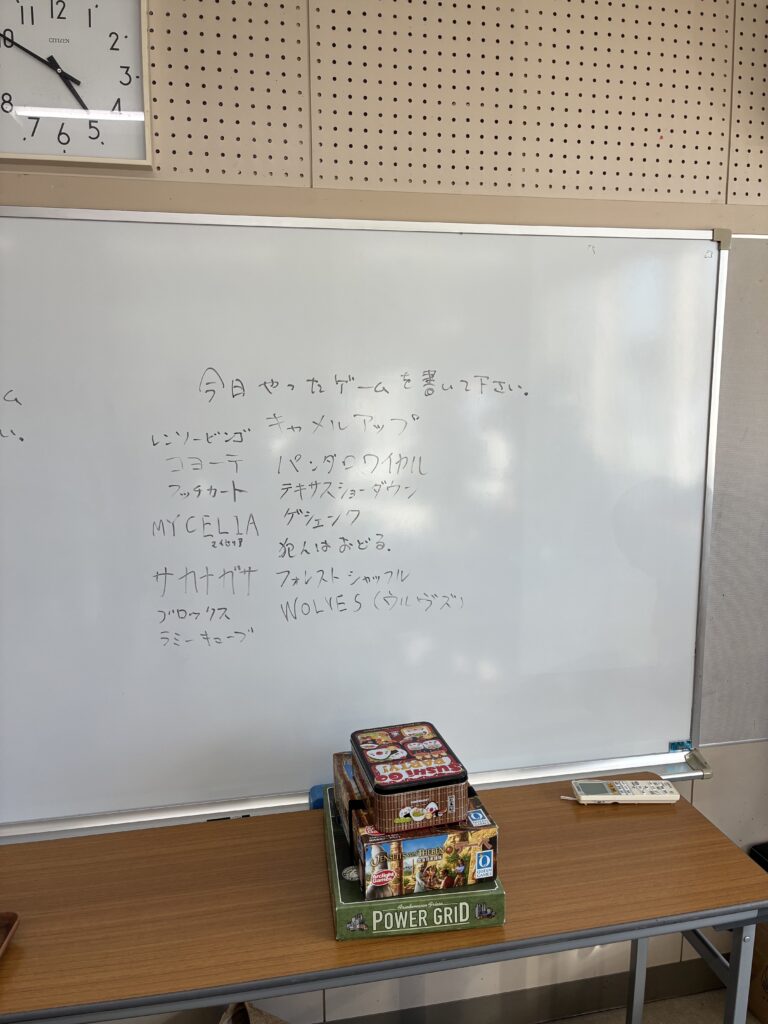 11 12 1
2
3
4
5
6
7
8
CITIZEN
今日やったゲームを書いて下さい。
キャメルアップ
レンソービンゴ
コヨーテ
パンダロワイヤル
フッチカート
テキサスショーダウン
MYCELIA
マイセリア
ゲシェンク
犯人はおどる。
サカナガサ
フォレストシャッフル
ブロックス
WOLVES (ウルヴズ)
ラミーキューブ
ム
い。
SUSHI GO
PARTY!
Arclight Games
QUEEN GAMES
POWER GRID